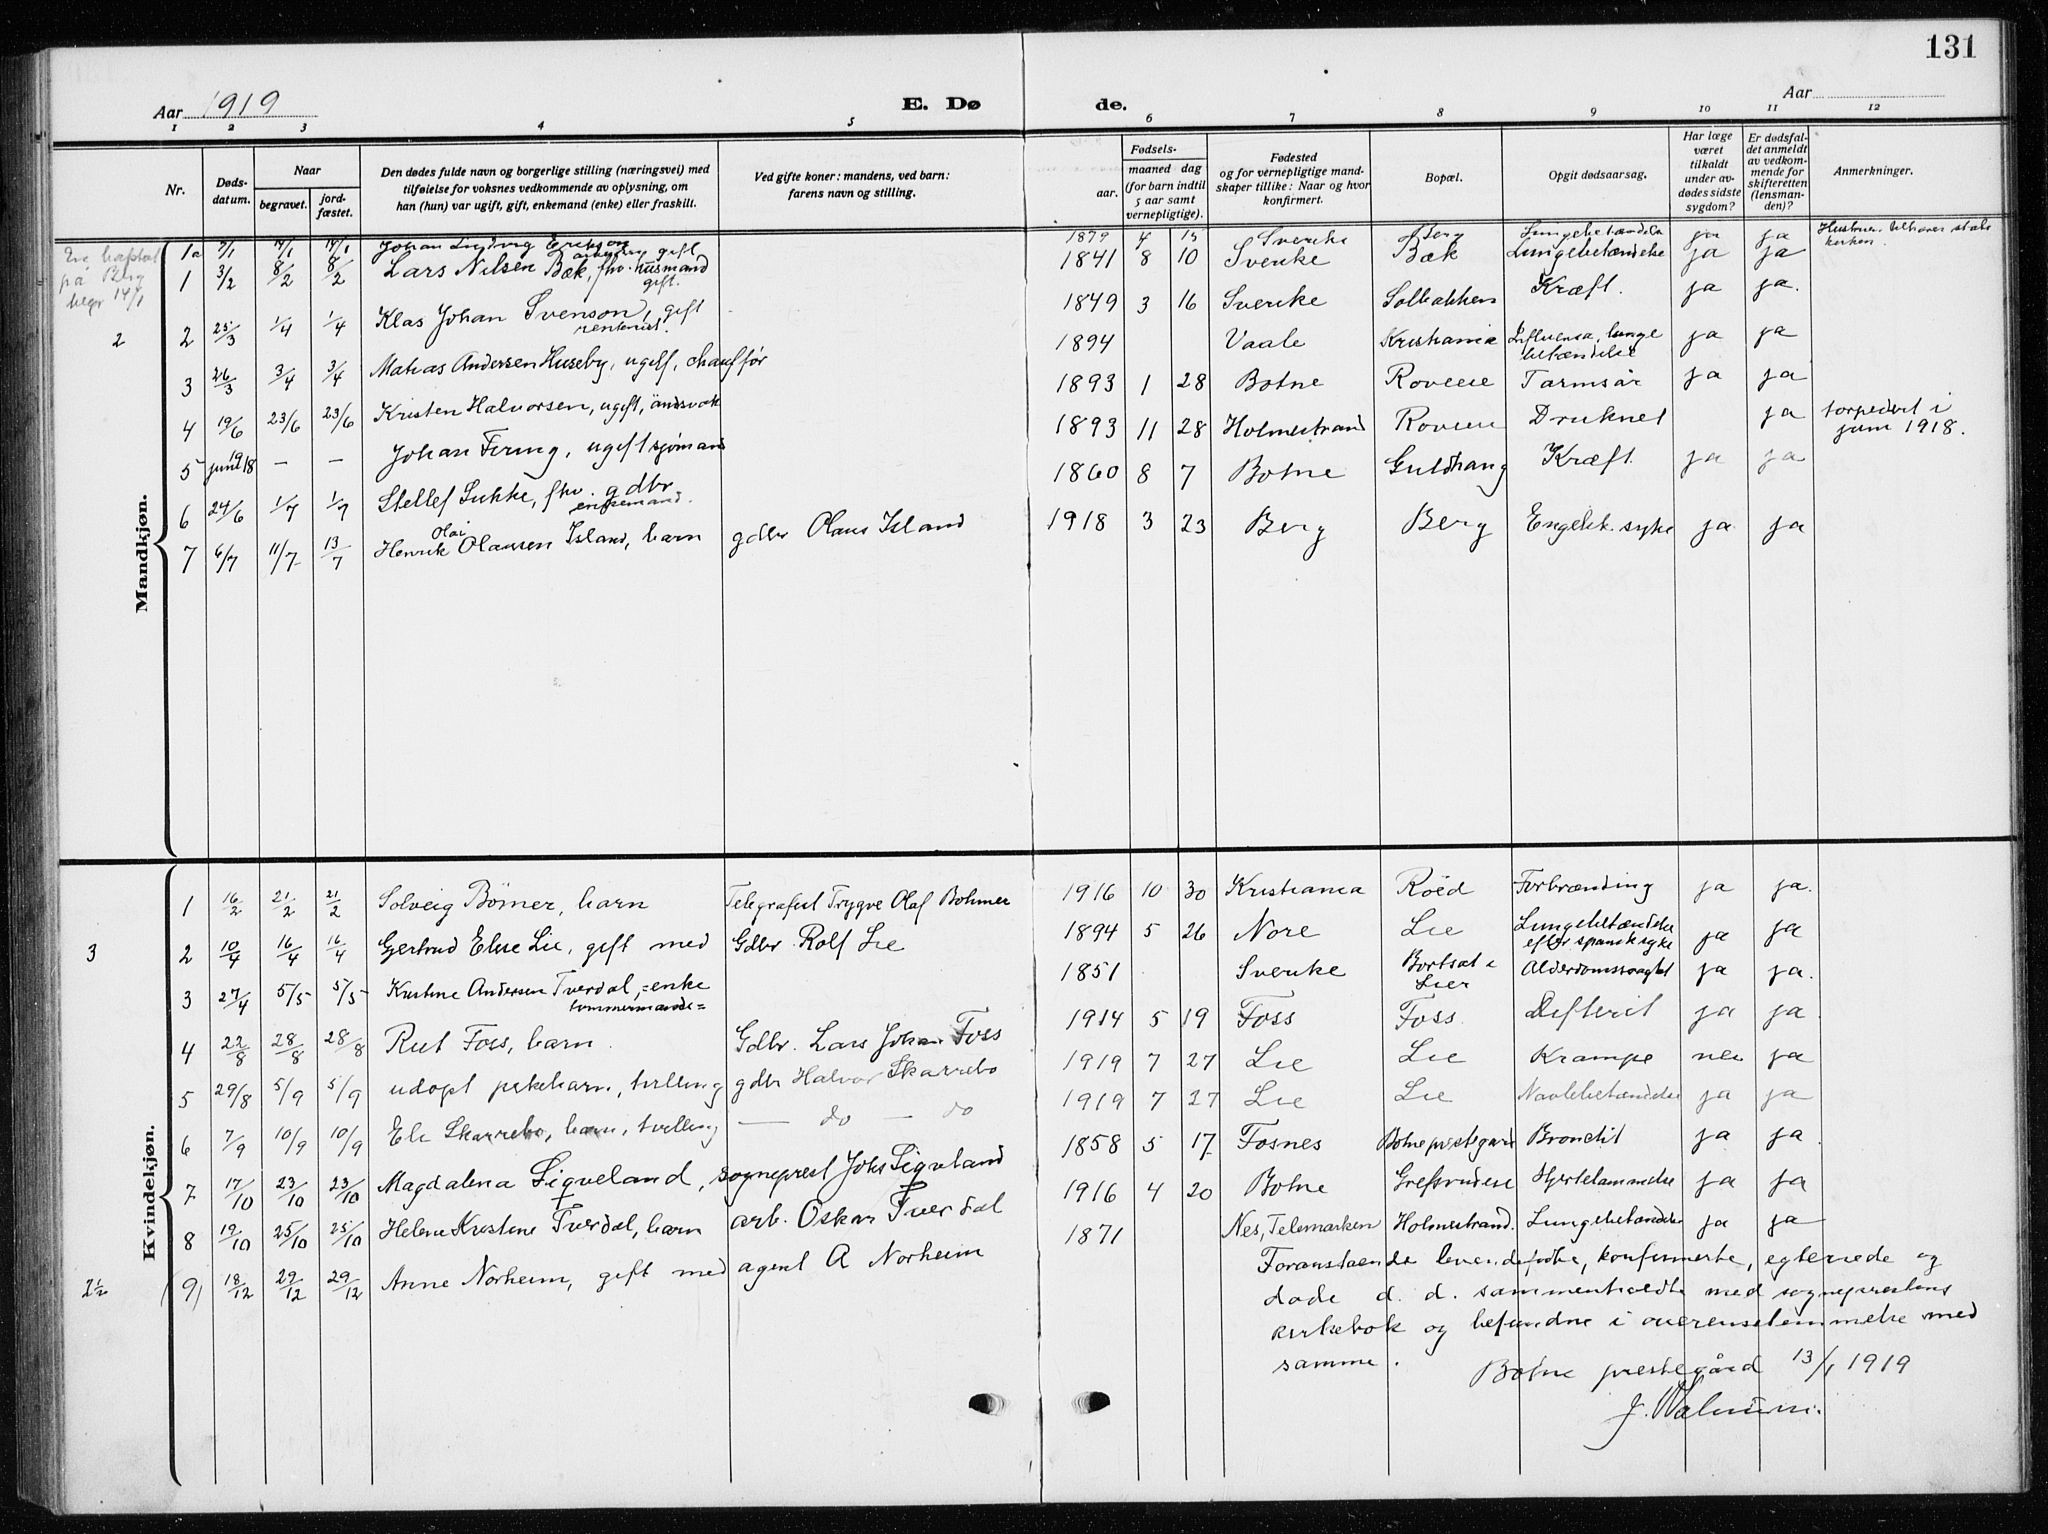 131
Aar 1919
E. Dø de.
Aar
1 2 3 4 5 6 7 8 9 10 11 12
Nr.
Døds-
datum.
Naar
begravet.
jord-
fæstet.
Den dødes fulde navn og borgerlige stilling (næringsvei) med
tilføielse for voksnes vedkommende av oplysning, om
han (hun) var ugift, gift, enkemand (enke) eller fraskilt.
Ved gifte koner: mandens, ved barn:
farens navn og stilling.
Fødsels-
aar.
maaned dag
(for barn indtil
5 aar samt
vernepligtige).
Fødested
og for vernepligtige mand-
skaper tillike: Naar og hvor
konfirmert.
Bopæl.
Opgit dødsaarsag.
Har læge
været
tilkaldt
under av-
dødes sidste
sygdom?
Er dødsfal-
det anmeldt
av vedkom-
mende for
skifteretten
(lensman-
den)?
Anmerkninger.
på Berg
begr 14/1
Mandkjøn.
1a 7/1 14/1 14/1 Johan Ludvig Erikson arbeider gift 1879 4 Sverike Berg Lungebetændelse ja ja
1 3/2 8/2 8/2 Lars Nilsen Bæk, fhv. husmand gift. 1841 8 10 Sverike Bæk Lungebetændelse ja ja
2 2 25/3 1/4 1/4 Klas Johan Svenson, gift rentenist. 1849 3 16 Sverike Solbakken Kræft. ja ja.
3 26/3 3/4 3/4 Matias Andersen Huseby, ugift, chauffør 1894 Vaale Kristiania Influensa, lunge betændelse ja ja
4 19/6 23/6 23/6 Kristen Halvorsen, ugift, åndsvak 1893 1 28 Botne Roveie Tarmsår ja ja
5 juni 1918 — — Johan Firing, ugift sjømand 1893 11 28 Holmestrand Roveie Druknet ja torpedert i juni 1918.
6 24/6 1/7 1/7 Stellef Sukke, fhv. gdbr enkemand. 1860 8 7 Botne Guldhaug Kræft ja ja
7 6/7 11/7 13/7 Henrik Olai Olausen Island, barn gdbr Olaus Island 1918 3 23 Berg Berg Engelsk syke ja ja
Kvindekjøn.
1 16/2 21/2 21/2 Solveig Bømer, barn Telegrafist Trygve Olaf Bohmer 1916 10 30 Kristiania Røed Forbrænding ja ja.
3 2 10/4 16/4 16/4 Gjertrud Elise Lie, gift med Gdbr. Rolf Lie 1894 5 26 Nore Lie Lungebetændelse efter spansksyke ja ja
3 27/4 5/5 5/5 Kristine Andersen Tverdal, =enke tømmermands= 1851 Sverike Bortsat i Lier Alderdomssvaghet ja ja.
4 22/8 28/8 28/8 Rut Foss, barn. Gdbr. Lars Johan Foss 1914 5 19 Foss Foss Difterit ja ja
5 29/8 5/9 5/9 udøpt pikebarn, tvilling gdbr Halvor Skarrebo 1919 7 27 Lie Lie Krampe nei ja
6 7/9 10/9 10/9 Eli Skarrebo, barn, tvilling — do — do 1919 7 27 Lie Lie Navlebetændelse ja ja
7 17/10 23/10 23/10 Magdalena Sigveland, sogneprest Johs Sigveland 1858 5 17 Fosnes Botne prestegard Bronchit ja ja
8 19/10 25/10 25/10 Helene Kristine Tverdal, barn arb. Oskar Tverdal 1916 4 20 Botne Grefsrudeie Hjertelammelse ja ja
2½ (9) 18/12 29/12 29/12 Anne Norheim, gift med agent A Norheim 1871 Nes, Telemarken Holmestrand. Lungebetændelse ja ja
Foranstaende levendefødte, konfirmerte, egteviede og
døde d. d. sammenholdte med sogneprestens
kirkebok og befundne i overensstemmelse med
samme.
Botne prestegård 13/1 1919